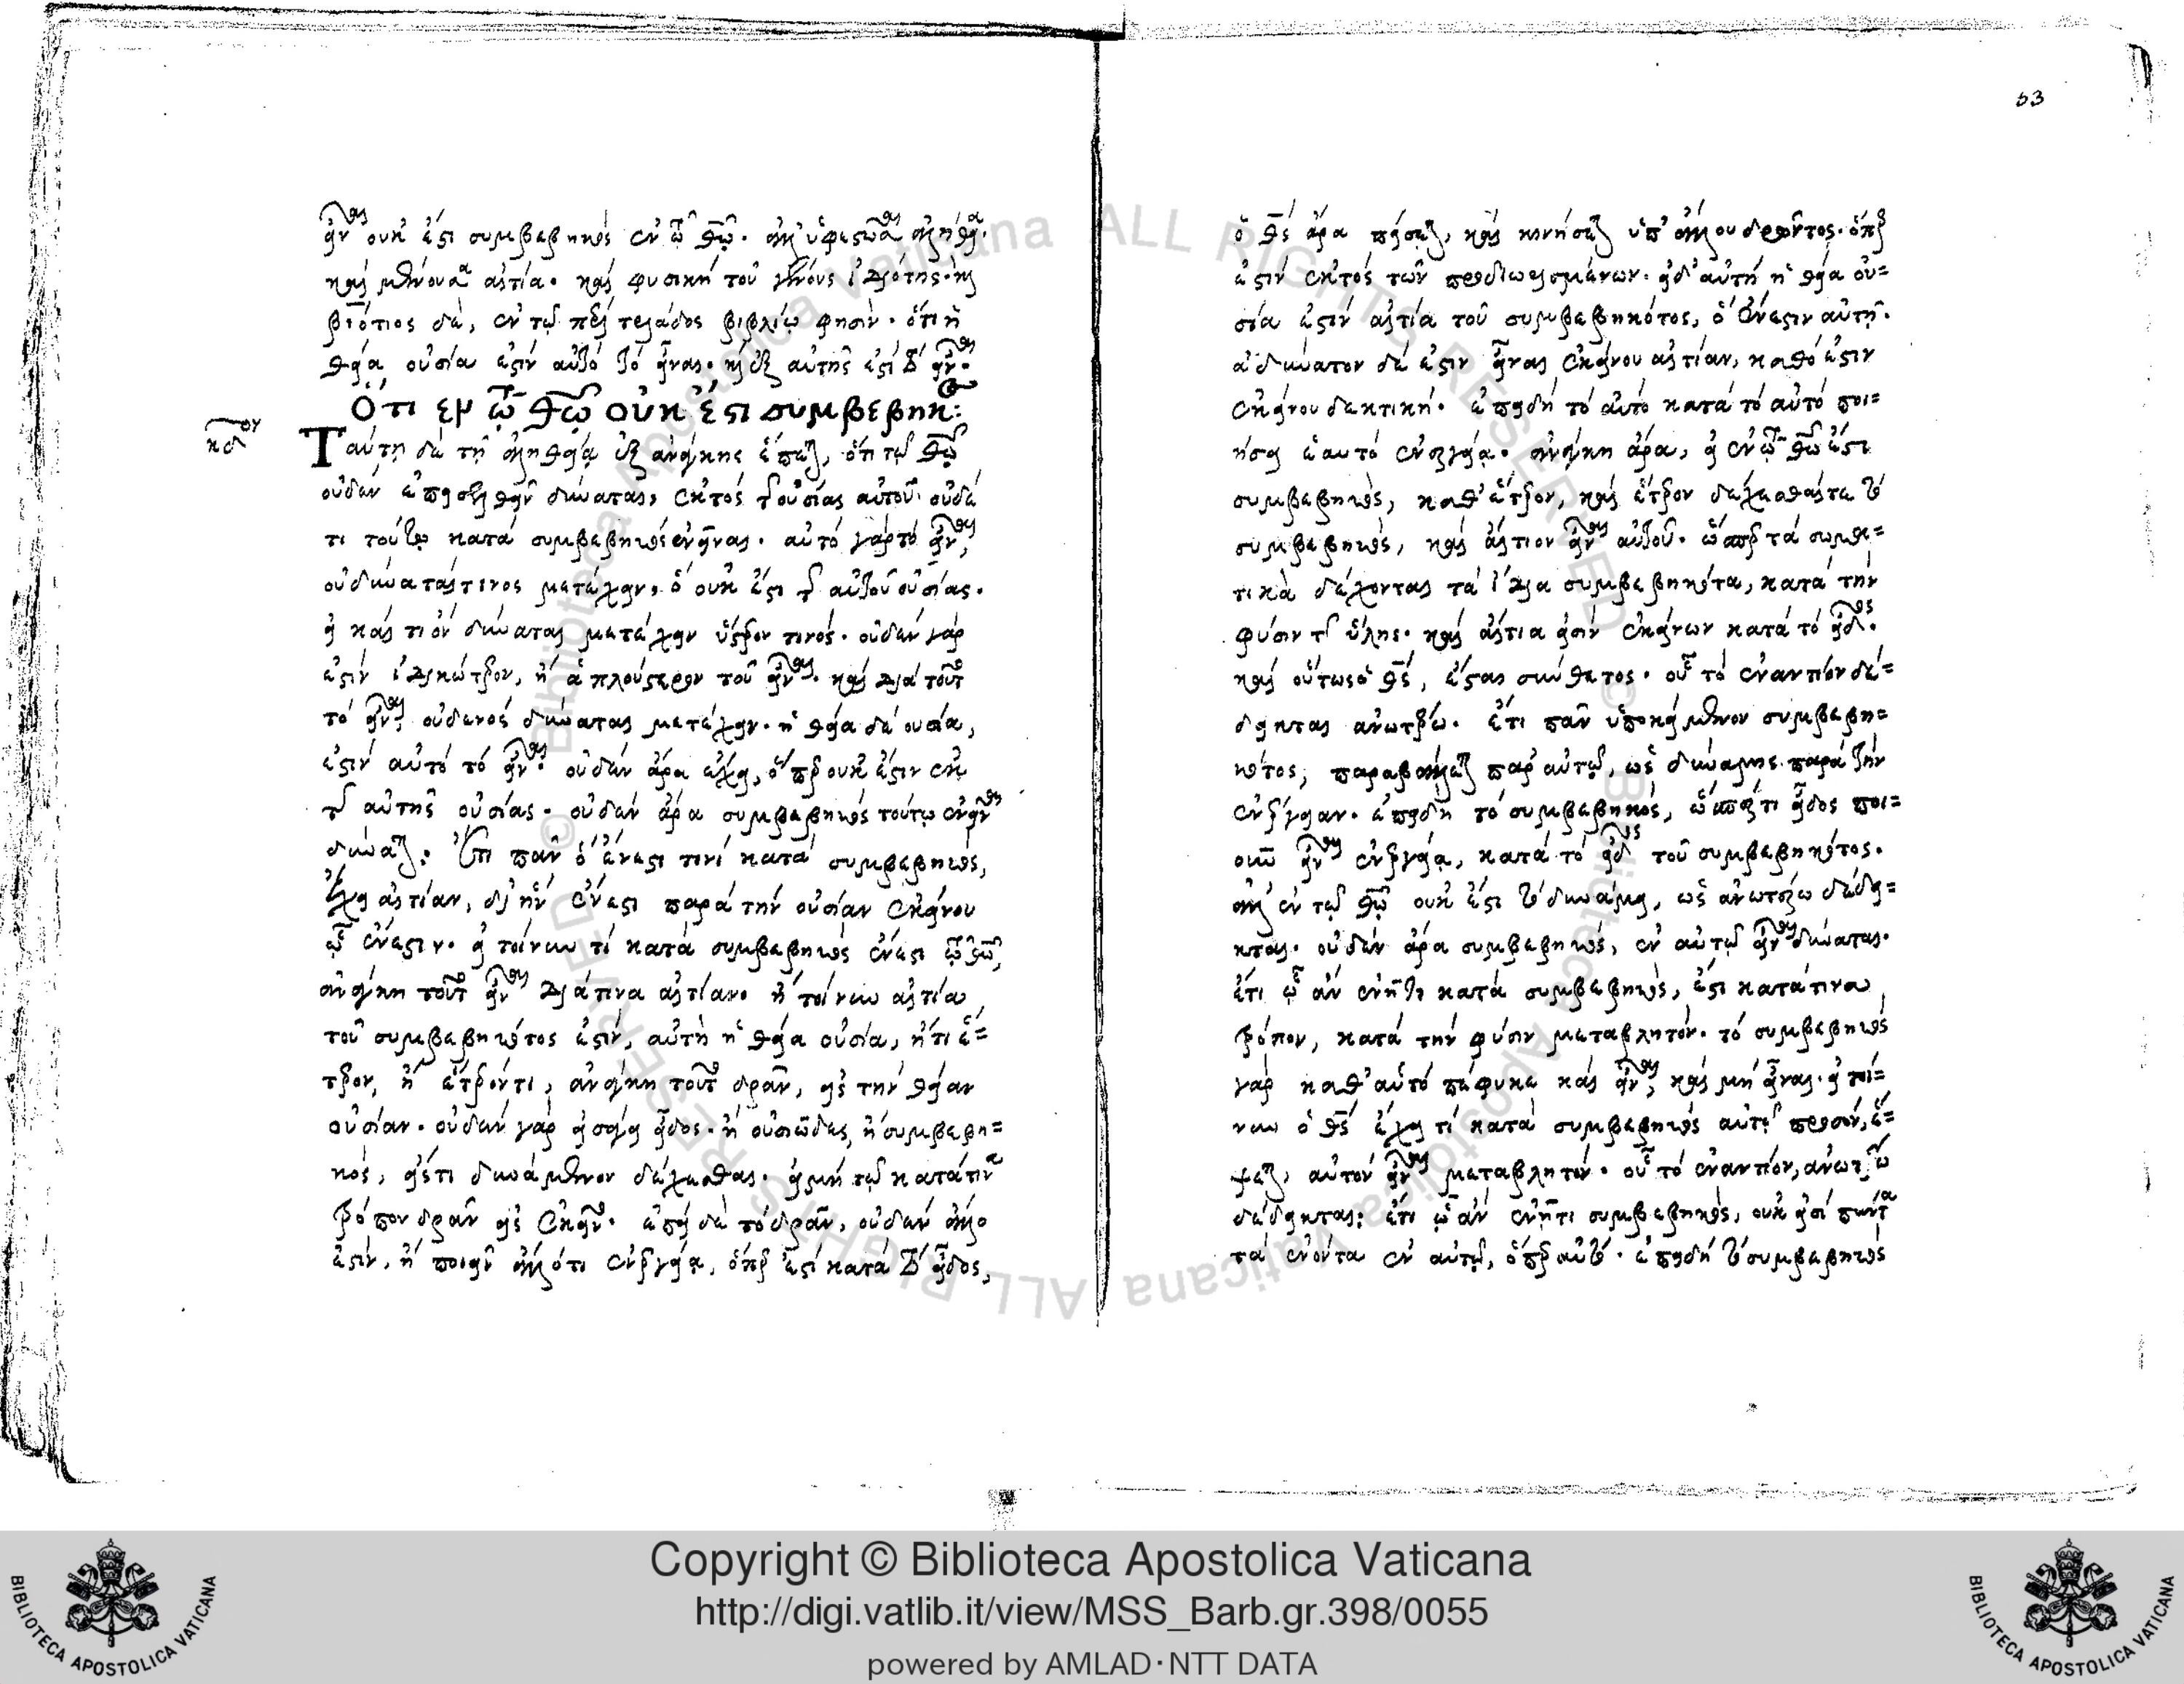 53
εἶναι οὐκ ἔστι συμβεβηκὸς ἐν τῷ θῷ. ἀλλ' ὑφεστῶσα ἀλήθεια.
καὶ μένουσα αἰτία. καὶ φυσικὴ τοῦ γένους ἰδιότης. καὶ
βιότιος δὲ, ἐν τῷ περὶ τριάδος βιβλίῳ φησὶν. ὅτι ἡ
θεία οὐσία ἐστὶν αὐτὸ τὸ εἶναι. καὶ ἐξ αὐτῆς ἐστὶ τὸ εἶναι.
Ὅτι ἐν τῷ θῷ οὐκ ἔστι συμβεβηκ:
Ταύτῃ δὲ τῇ ἀληθείᾳ ἐξ ἀνάγκης ἕπεται, ὅτι τῷ θῷ
οὐδὲν ἐπεισελθεῖν δύναται, ἐκτὸς τῆς οὐσίας αὐτοῦ. οὐδέ
τι τούτῳ κατὰ συμβεβηκὸς ἐνεῖναι. αὐτὸ γὰρ τὸ εἶναι,
οὐ δύναταί τινος μετέχειν, ὃ οὐκ ἔστι τῆς αὐτοῦ οὐσίας.
εἰ καί τι ὂν δύναται μετέχειν ὕστερον τινός. οὐδὲν γάρ
ἐστιν ἰδικώτερον, ἢ ἁπλούστερον τοῦ εἶναι. καὶ διὰ τοῦτο
τὸ εἶναι, οὐδενὸς δύναται μετέχειν. ἡ θεία δὲ οὐσία,
ἐστὶν αὐτὸ τὸ εἶναι. οὐδὲν ἄρα ἔχει, ὅπερ οὐκ ἔστιν ἐκ
τῆς αὐτῆς οὐσίας. οὐδὲν ἄρα συμβεβηκὸς τούτῳ ἐνεῖναι
δύναται: Ἔτι πᾶν ὃ ἔνεστί τινι κατὰ συμβεβηκός,
ἔχει αἰτίαν, δι' ἣν ἔνεστι παρὰ τὴν οὐσίαν ἐκείνου
ᾧ ἔνεστιν. εἰ τοίνυν τί κατὰ συμβεβηκὸς ἔνεστι τῷ θῷ,
ἀνάγκη τοῦτο εἶναι διά τινα αἰτίαν. ἢ τοίνυν αἰτία
τοῦ συμβεβηκότος ἐστὶν, αὐτὴ ἡ θεία οὐσία, ἤ τι ἕ=
τερον, ἢ ἕτερόν τι, ἀνάγκη τοῦτο δρᾶν, εἰς τὴν θείαν
οὐσίαν. οὐδὲν γὰρ εἰσάγει εἶδος. ἢ οὐσιῶδες, ἢ συμβεβη=
κός, εἰς τι δυνάμενον δέχεσθαι. εἰ μὴ τῷ κατά τινα
τρόπον δρᾶν εἰς ἐκεῖνο. ἐπεὶ δὲ τὸ δρᾶν, οὐδὲν ἄλλο
ἐστὶν, ἢ ποιεῖν ἄλλό τι ἐνεργείᾳ, ὅπερ ἐστὶ κατὰ τὸ εἶδος,
ὁ θς ἄρα πείσεται, καὶ κινήσεται ὑπ' ἄλλου δρῶντος. ὅπερ
ἐστὶν ἐκτὸς τῶν προδιωρισμένων. εἰ δ' αὐτὴ ἡ θεία οὐ=
σία ἐστὶν αἰτία τοῦ συμβεβηκότος, ὃ ἔνεστιν αὐτῇ.
ἀδύνατον δέ ἐστιν εἶναι ἐκείνου αἰτίαν, καθό ἐστιν
ἐκείνου δεκτική. ἐπειδὴ τὸ αὐτὸ κατὰ τὸ αὐτὸ ποι=
ήσει ἑαυτὸ ἐνεργείᾳ. ἀνάγκη ἄρα, εἰ ἐν τῷ θῷ ἐστι
συμβεβηκός, καθ' ἕτερον, καὶ ἕτερον δέχεσθαί τε τὸ
συμβεβηκός, καὶ αἴτιον εἶναι αὐτοῦ. ὥσπερ τὰ σωμα=
τικὰ δέχονται τὰ ἴδια συμβεβηκότα, κατὰ τὴν
φύσιν τῆς ὕλης. καὶ αἴτιά εἰσιν ἐκείνων κατὰ τὸ εἶδος.
καὶ οὕτως ὁ θς, ἔσται σύνθετος. οὗ τὸ ἐναντίον δέ=
δεικται ἀνωτέρω. ἔτι πᾶν ὑποκείμενον συμβεβη=
κότος, παραβάλλεται παρ' αὐτῷ, ὡς δύναμις παρὰ τὴν
ἐνέργειαν. ἐπειδὴ τὸ συμβεβηκός, ὥσπερ τι εἶδος ποι=
οῦν εἶναι ἐνεργείᾳ, κατὰ τὸ εἶδος τοῦ συμβεβηκότος.
ἀλλ' ἐν τῷ θῷ οὐκ ἔστι τὸ δυνάμει, ὡς ἀνωτέρω δέδει=
κται. οὐδὲν ἄρα συμβεβηκός, ἐν αὐτῷ εἶναι δύναται.
ἔτι ᾧ ἂν ἐνῇ τι κατὰ συμβεβηκός, ἐστι κατά τινα
τρόπον, κατὰ τὴν φύσιν μεταβλητόν. τὸ συμβεβηκὸς
γὰρ καθ' αὑτὸ πέφυκε καὶ εἶναι, καὶ μὴ εἶναι. εἰ τοί=
νυν ὁ θς ἔχει τί κατὰ συμβεβηκὸς αὐτῷ προσόν, ἕ=
ψεται, αὐτὸν εἶναι μεταβλητόν. οὗ τὸ ἐναντίον, ἀνωτέρω
δέδεικται: ἔτι ᾧ ἂν ἐνῇ τι συμβεβηκός, οὐκ εἰσὶ πάντα
τὰ ἐνόντα ἐν αὐτῷ, ὅπερ αὐτό. ἐπειδὴ τὸ συμβεβηκὸς
Copyright © Biblioteca Apostolica Vaticana
http://digi.vatlib.it/view/MSS_Barb.gr.398/0055
powered by AMLAD·NTT DATA
BIBLIOTECA APOSTOLICA VATICANA
BIBLIOTECA APOSTOLICA VATICANA